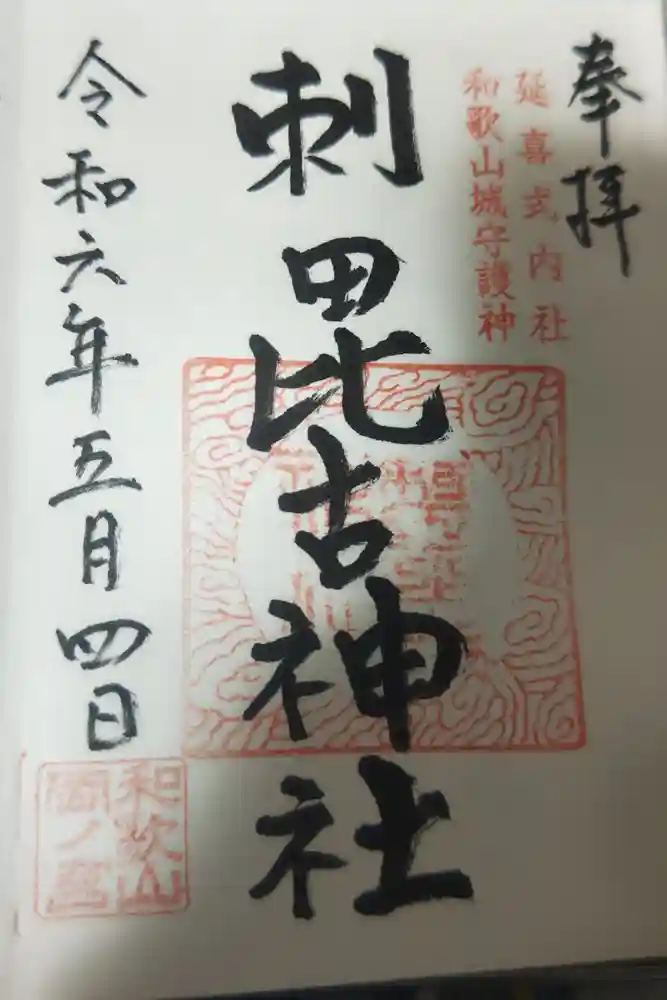 奉拝
延喜式内社
和歌山城守護神
刺田比古神社
令和六年五月四日
和歌山
岡ノ里